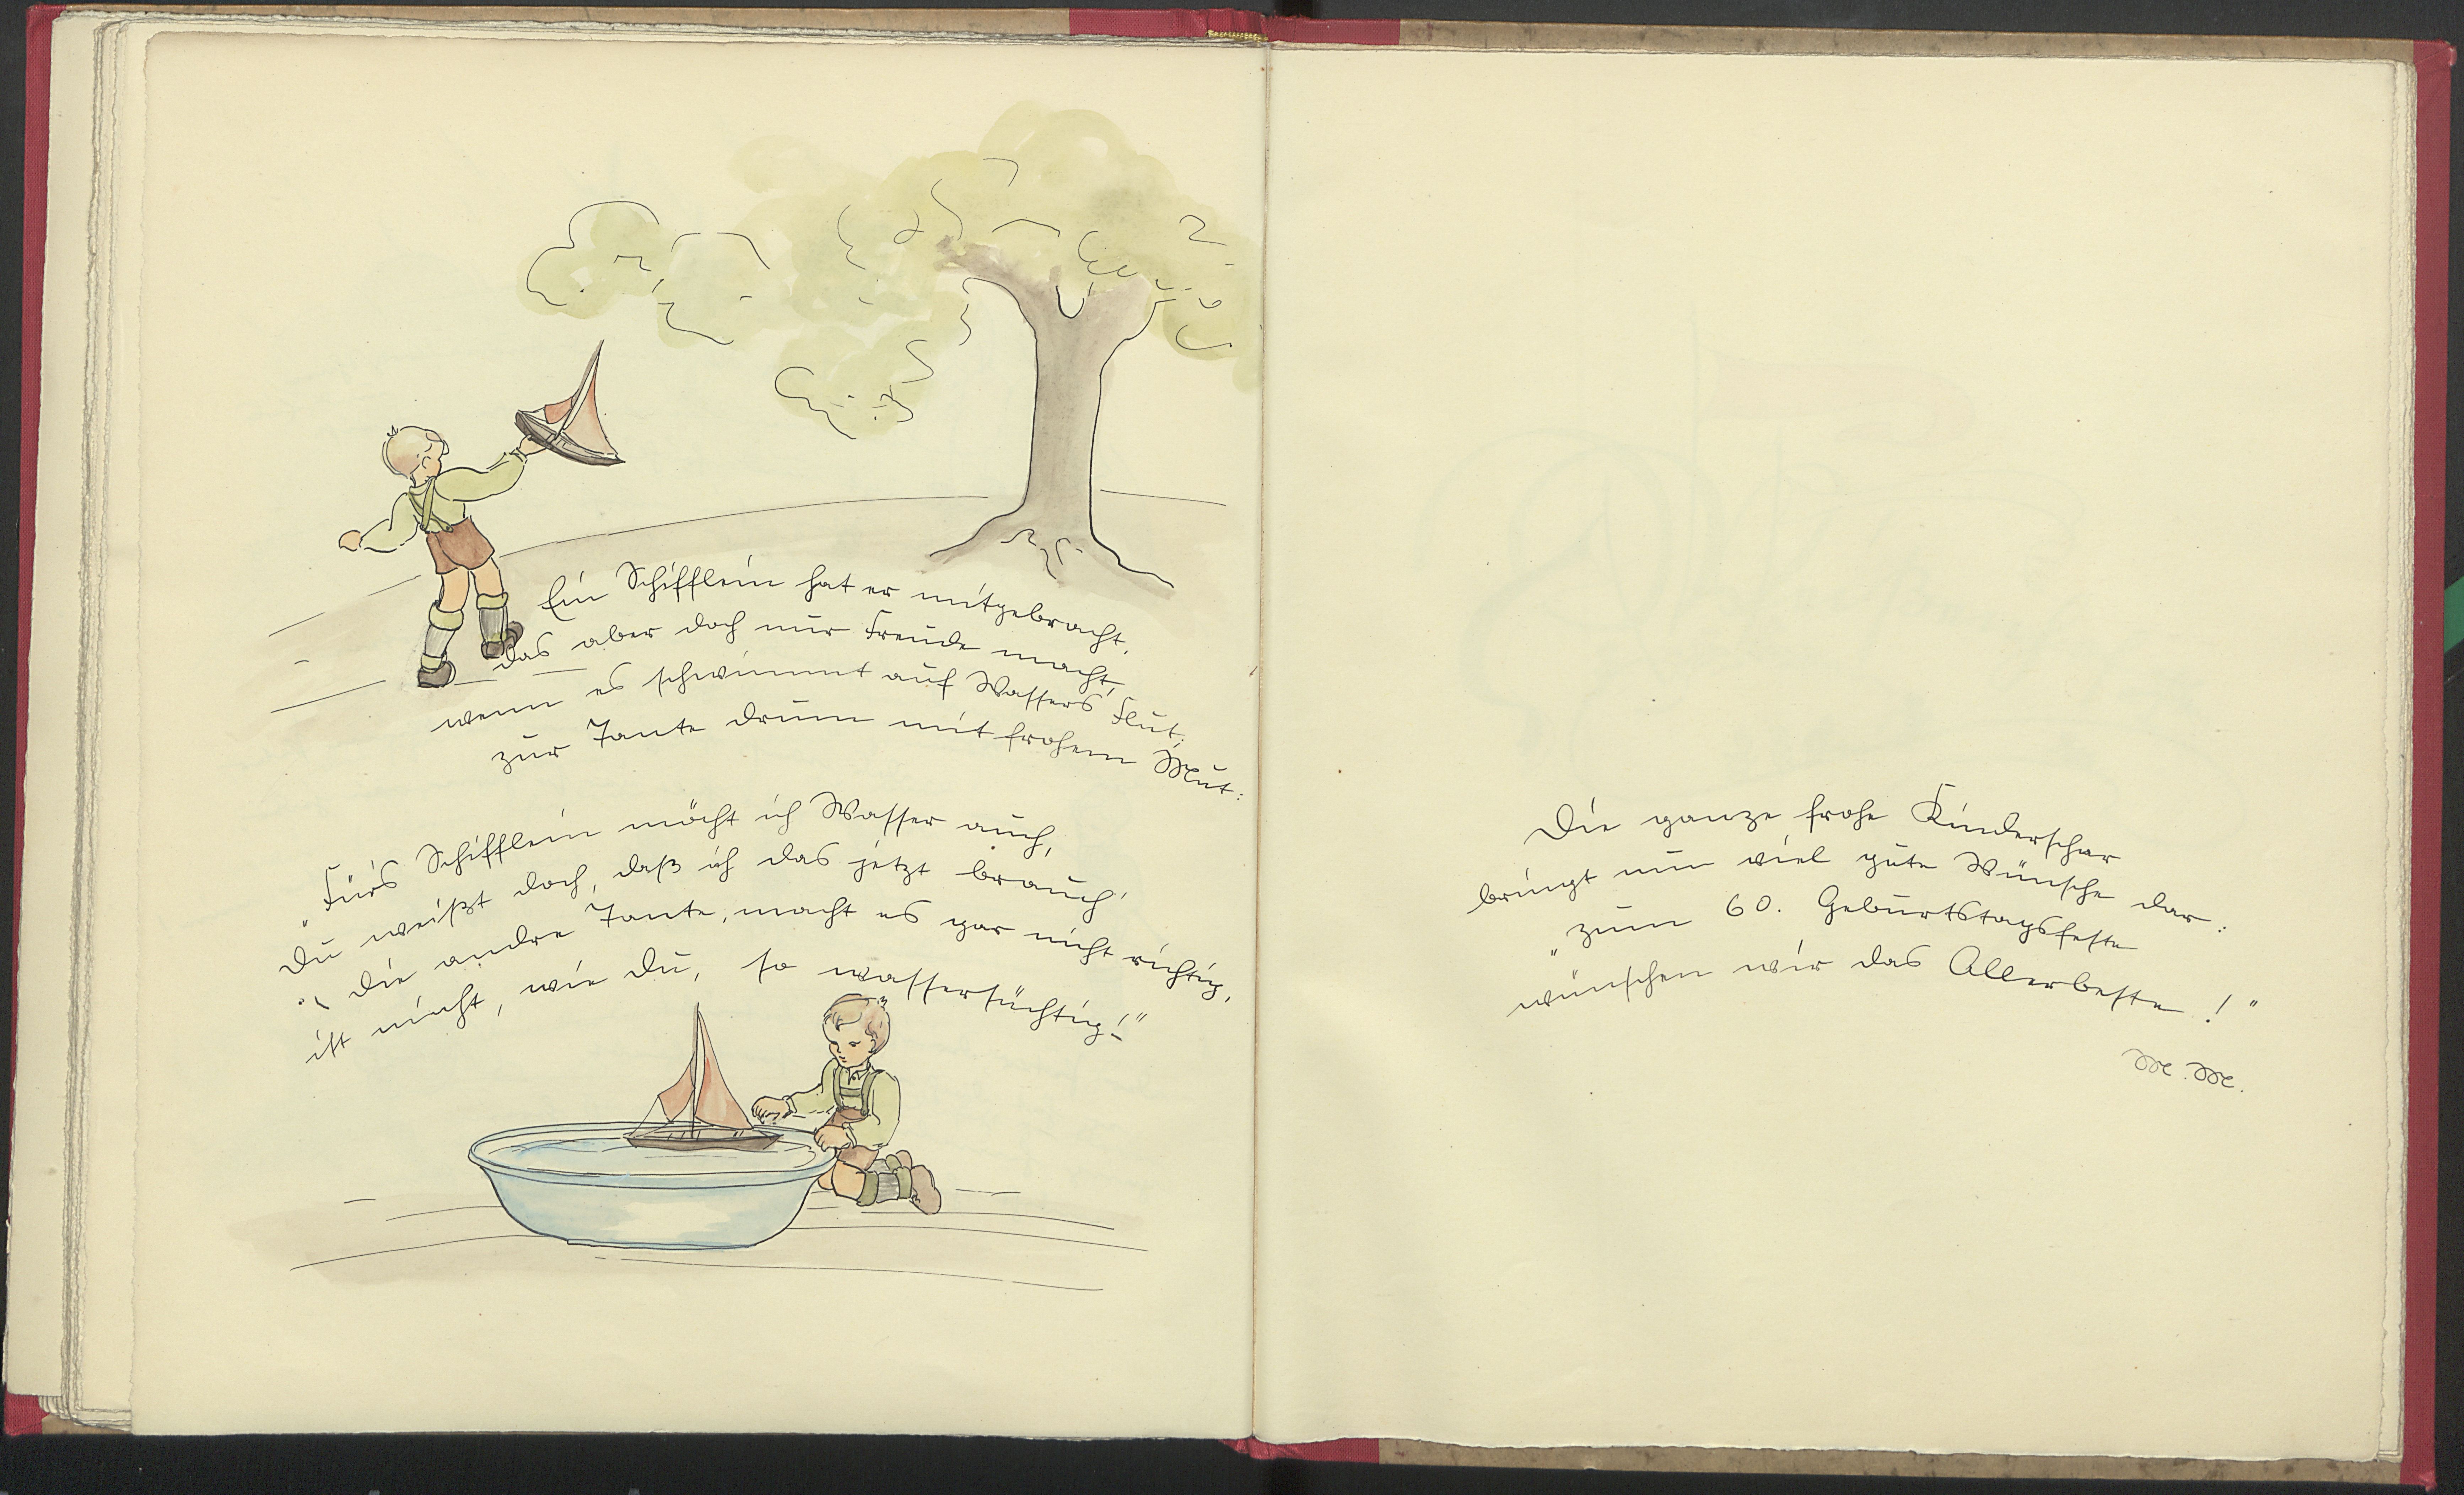 Ein Schifflein hat er mitgebracht,
das aber doch nur Freude macht,
wenn es schwimmt auf Wassers Flut;
zur Tante drum mit frohem Mut:
„Fürs Schifflein möcht ich Wasser auch,
du weißt doch, daß ich das jetzt brauch'
die andre Tante, macht es gar nicht richtig,
ist nicht, wie du, so wassersüchtig!"
Die ganze frohe Kinderschar
bringt nun viel gute Wünsche dar:
„zum 60. Geburtstagsfeste
wünschen wir das Allerbeste!"
M. M.